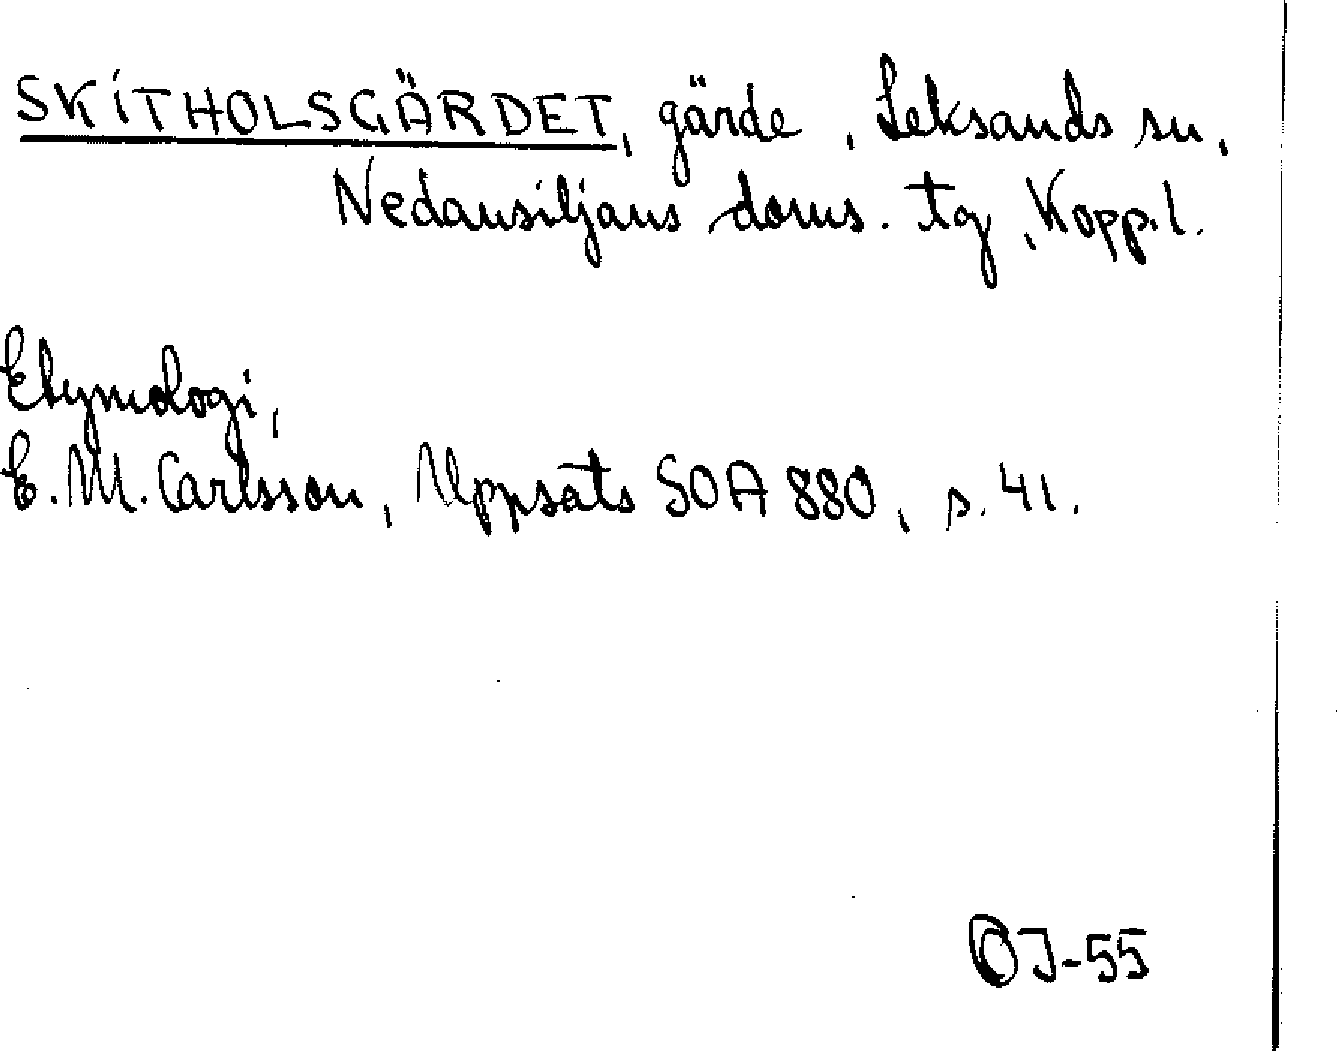 SKITHOLSGÄRDET, gärde, Leksands sn,
Nedansiljans doms. tg, Kopp.l.
Etymologi,
E. M. Carlsson, Uppsats SOA 880, s. 41.
OJ-55